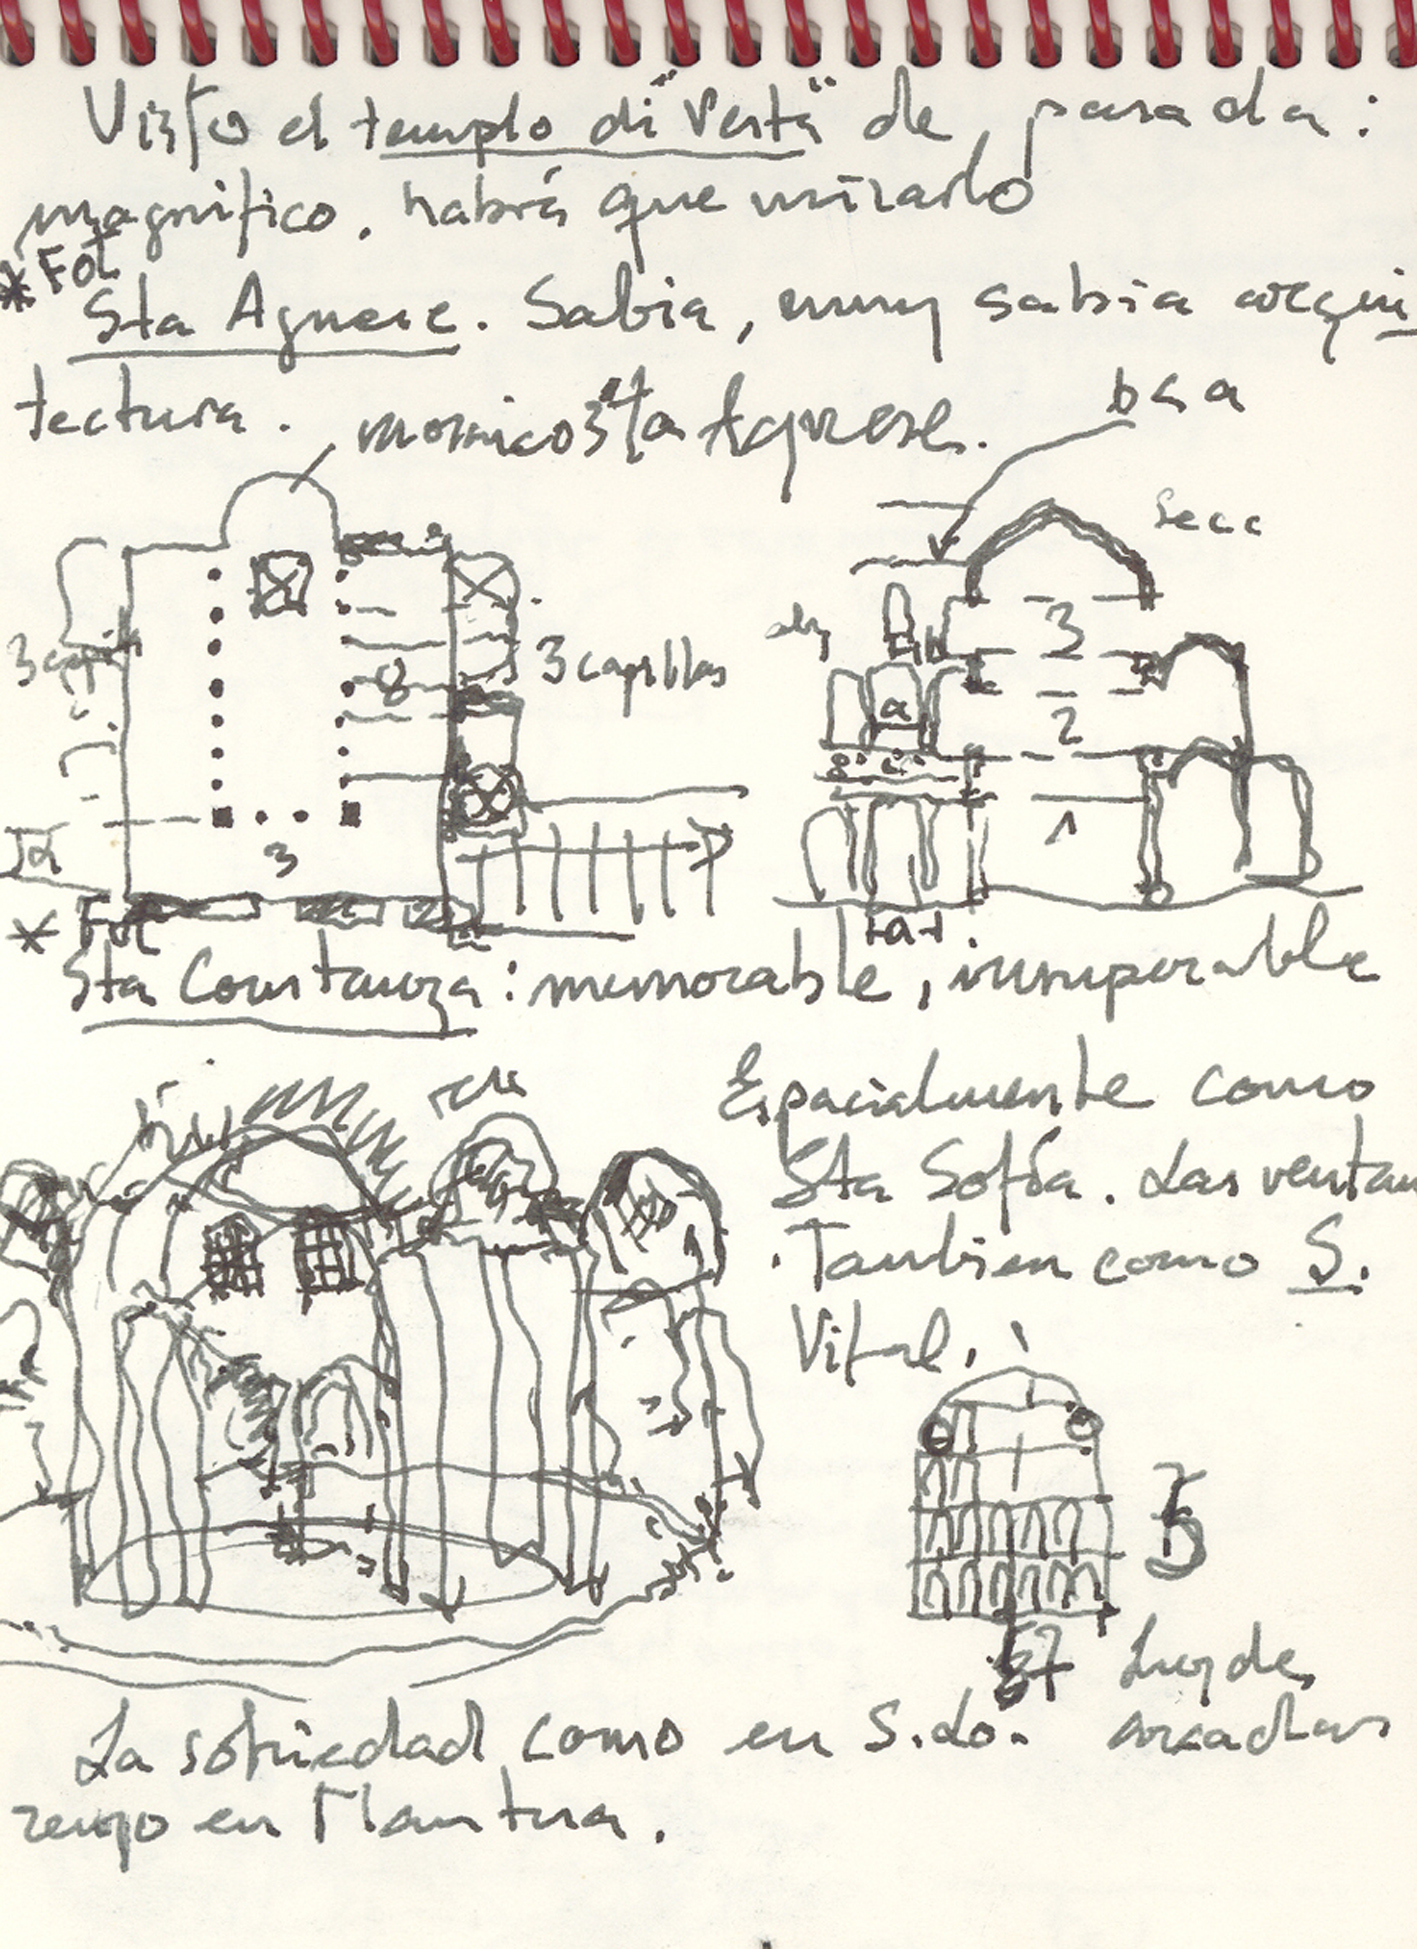 Visto el templo di "Vesta" de pasada:
magnífico. habrá que mirarlo
* Fot
Sta Agnese. Sabia, muy sabia arqui
tectura.
mosaico Sta Agnese.
b < a
Secc
3 capillas
8
3
3
2
1
a
a
* Fot
Sta Constanza: memorable, insuperable
Espacialmente como
Sta Sofía. Las ventan
Tambien como S.
Vital.
Luz de
arcadas
La sobriedad como en S. Lo.
renzo en Mantua.